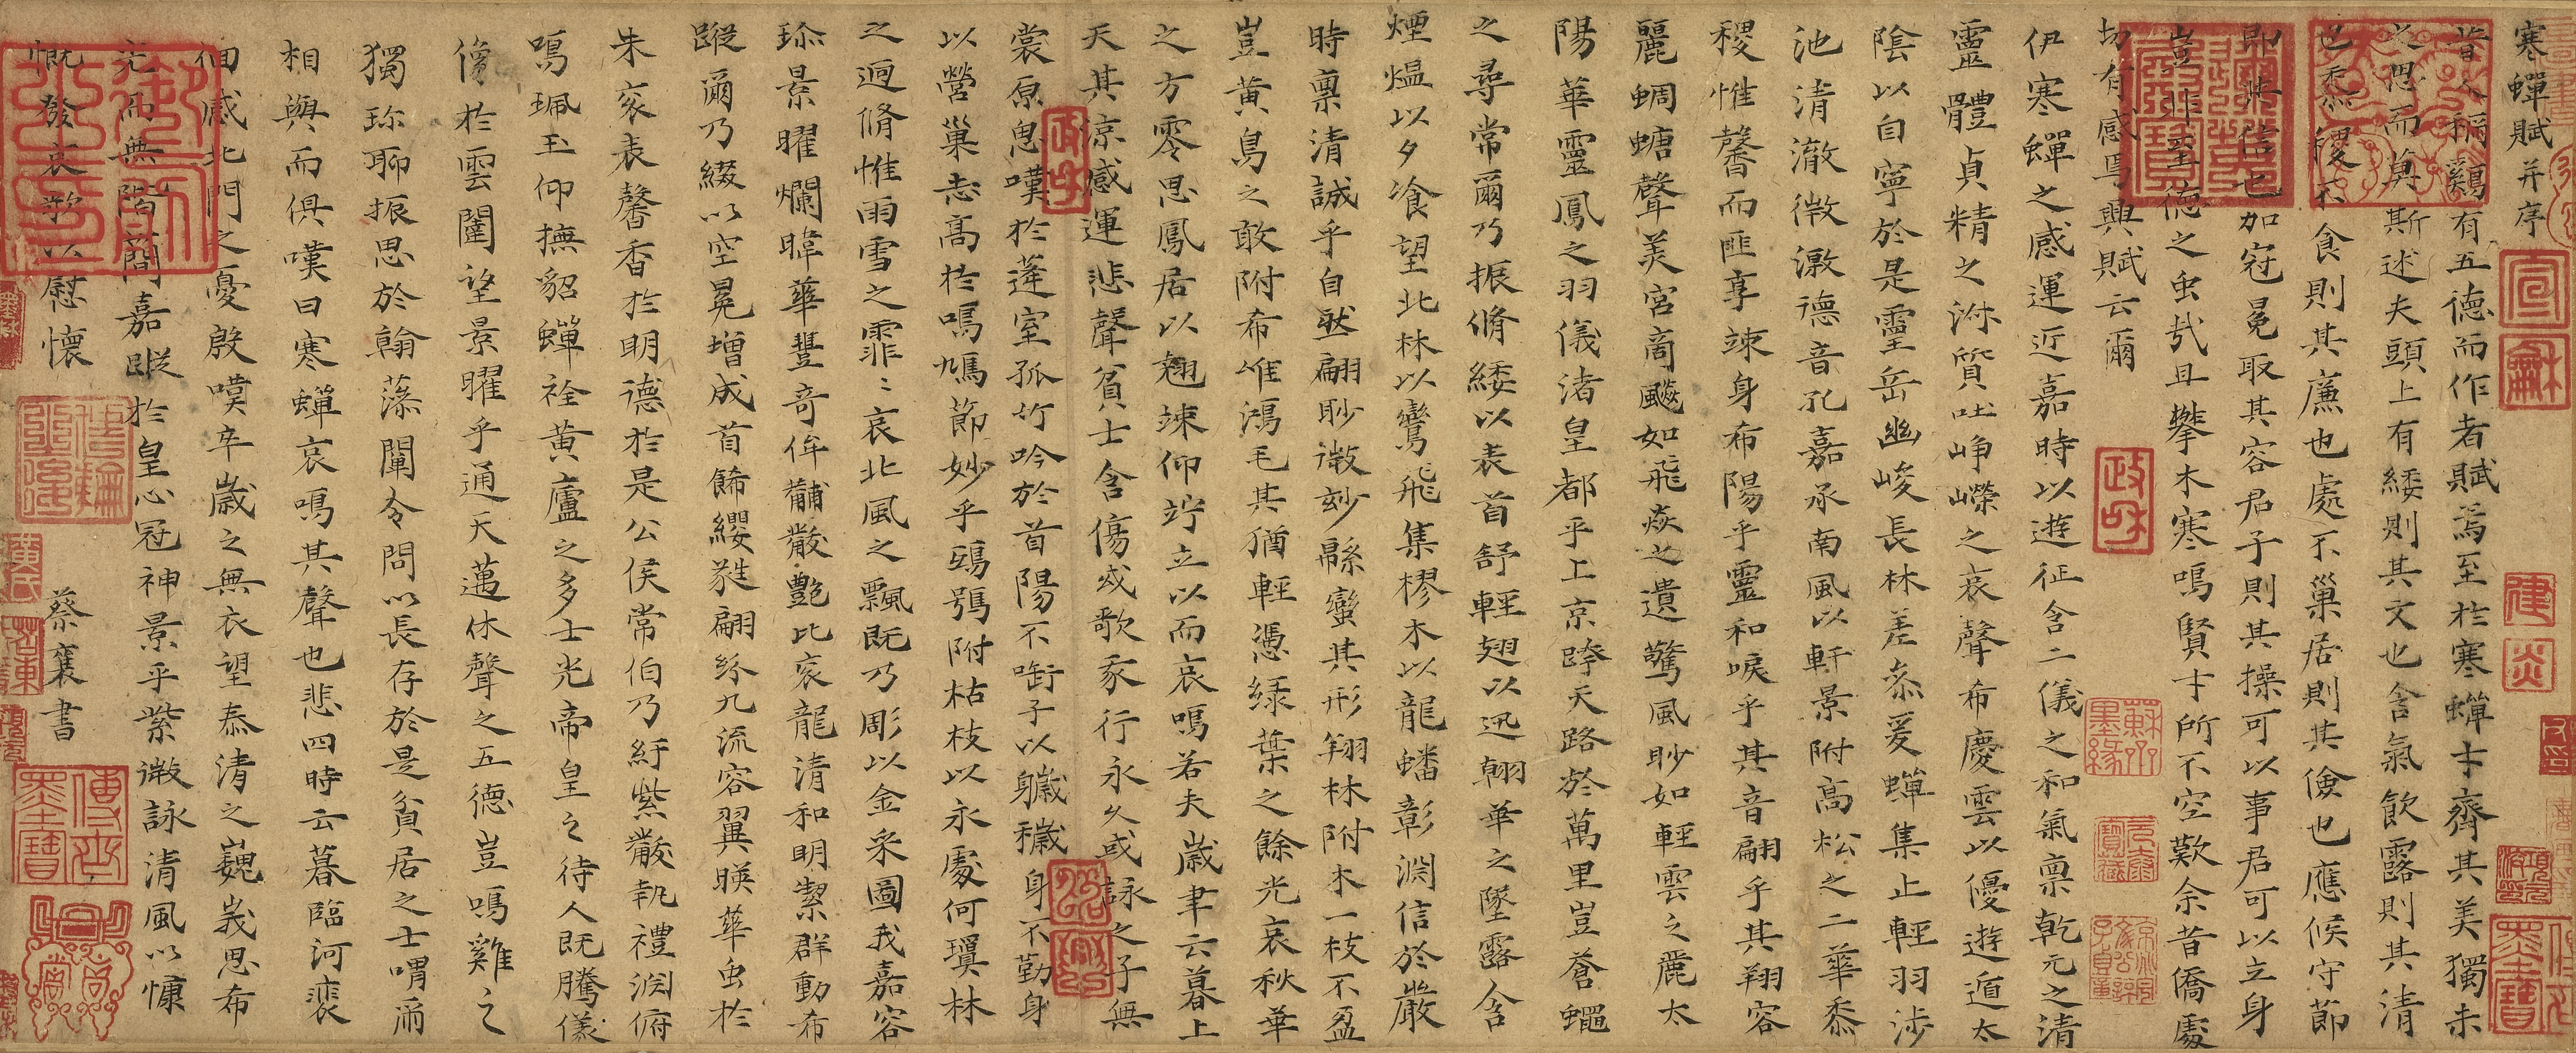 寒蟬賦并序
昔人稱鷄有五德而作者賦焉至於寒蟬才齊其美獨未
之思而莫斯述夫頭上有緌則其文也含氣飲露則其清
也黍稷不食則其廉也處不巢居則其儉也應候守節
即其信也加冠冕取其容君子則其操可以事君可以立身
豈非至德之虫哉且攀木寒鳴賢士所不空歎余昔僑處
切有感焉興賦云爾
伊寒蟬之感運近嘉時以遊征含二儀之和氣禀乾元之清
靈體貞精之淑質吐峥嶸之哀聲希慶雲以優遊遁太
陰以自寧於是靈岳幽峻長林差叅爰蟬集止輕羽涉
池清澈微激德音孔嘉承南風以軒景附高松之二華黍
稷惟馨而匪享竦身希陽乎靈和唳乎其音翩乎其翔容
麗蜩螗聲美宮商飈如飛焱之遺驚風眇如輕雲之麗太
陽華靈鳳之羽儀渚皇都乎上京跨天路於萬里豈蒼蠅
之尋常爾乃振脩緌以表首舒輕翅以迅翰華之墜露含
煙熅以夕飡望北林以鸞飛集樛木以龍蟠彰淵信於嚴
時禀清誠乎自然翩眇微妙緜蠻其形翔林附木一枝不盈
豈黄鳥之敢附希唯鴻毛其猶輕憑緑葉之餘光哀秋華
之方零思鳳居以翹竦仰竚立以而哀鳴若夫歲聿云暮上
天其涼感運悲聲貧士含傷或歌我行永久或詠之子無
裳原思嘆於蓬室孤竹吟於首陽不銜子以軄穢身不勤身
以營巢志高於鳴鳩節妙乎鴟鴞附枯枝以永處何瓊林
之迴脩惟雨雪之霏〻哀北風之飄既乃彫以金采圖我嘉容
珍景曜爛暐華豐奇侔黼黻艷比衮龍清和明潔群動希
蹤爾乃綴以空冕增成首飾纓蕤翩紛九流容翼暎華虫於
朱衮表馨香於明德於是公侯常伯乃紆紫黻執禮淵俯
鳴珮玉仰撫貂蟬裣黄廬之多士光帝皇之待人既騰儀
像於雲闈望景曜乎通天邁休聲之五德豈鳴雞之
獨珍聊振思於翰藻闡令問以長存於是貧居之士喟爾
相與而俱嘆曰寒蟬哀鳴其聲也悲四時云暮臨河裴
佪感北門之憂殷嘆卒歲之無衣望泰清之巍峩思希
光而無階簡嘉蹤於皇心冠神景乎紫微詠清風以慷
慨發哀歌以慰懷
蔡襄書
宣龢
政和
紹興
建炎
政和